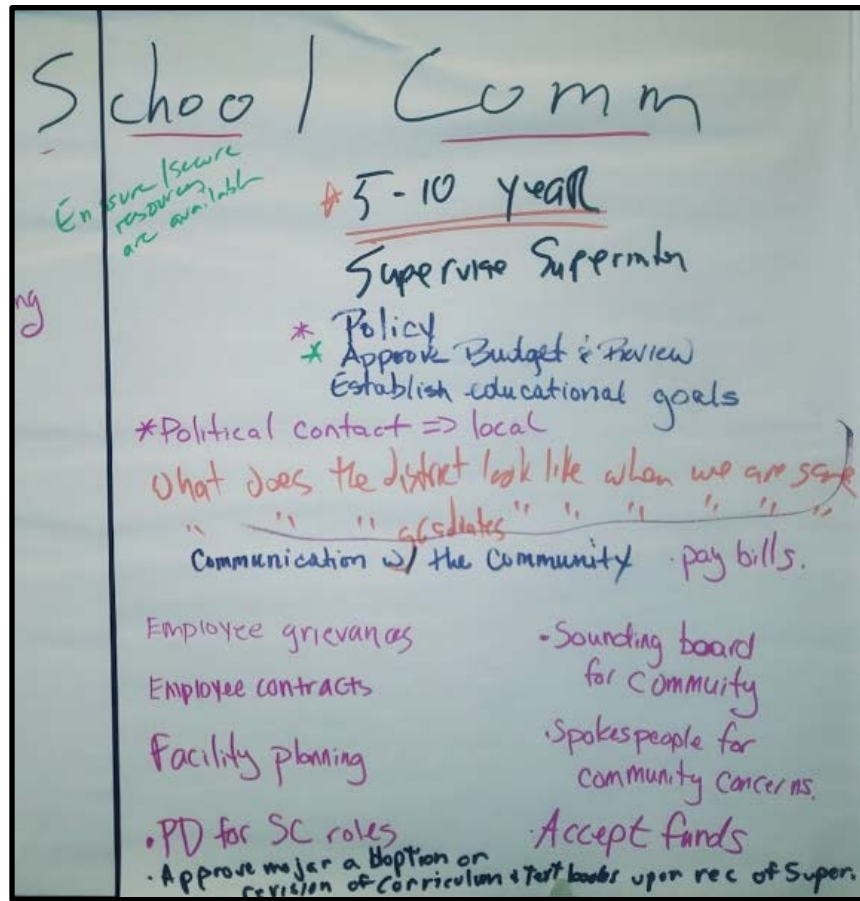 School Comm
Ensure/secure
resources
are available
5-10 year
Supervise
ng
* Policy
* Approve Budget & Review
Establish educational goals
*Political contact => local
What does the district look like when we are
" " " graduates " " " " " "
Communication w/ the Community · pay bills.
Employee grievances
Employee contracts
Facility planning
· PD for SC roles
· Sounding board
for Commuity
· Spokespeople for
community concerns.
· Accept funds
· Approve major adoption or
revision of Corriculum & Text books upon rec of Super.